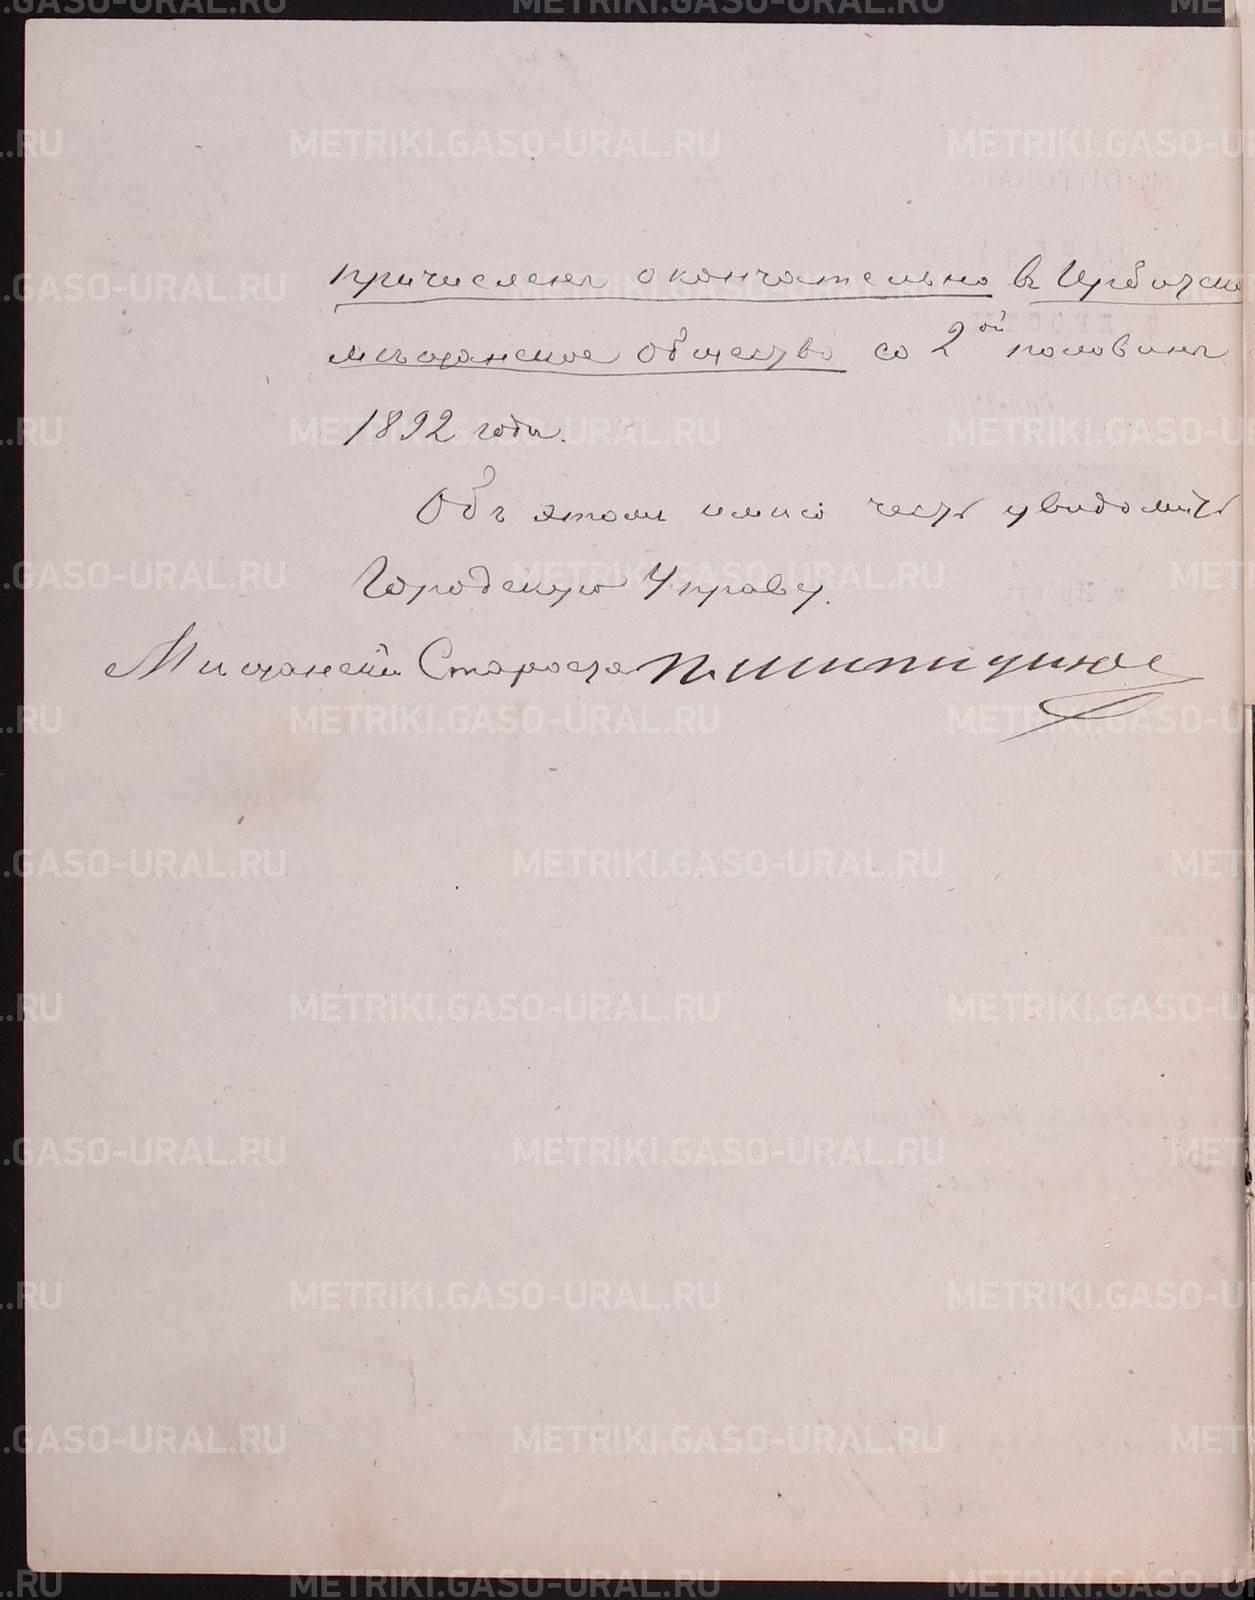 причислены окончательно въ Ирбитско
мѣщанское общество со 2ой половины
1892 года.
Объ этомъ имѣю честь увѣдомить
Городскую Управу.
Мѣщанскій Староста
METRIKI.GASO-URAL.RU